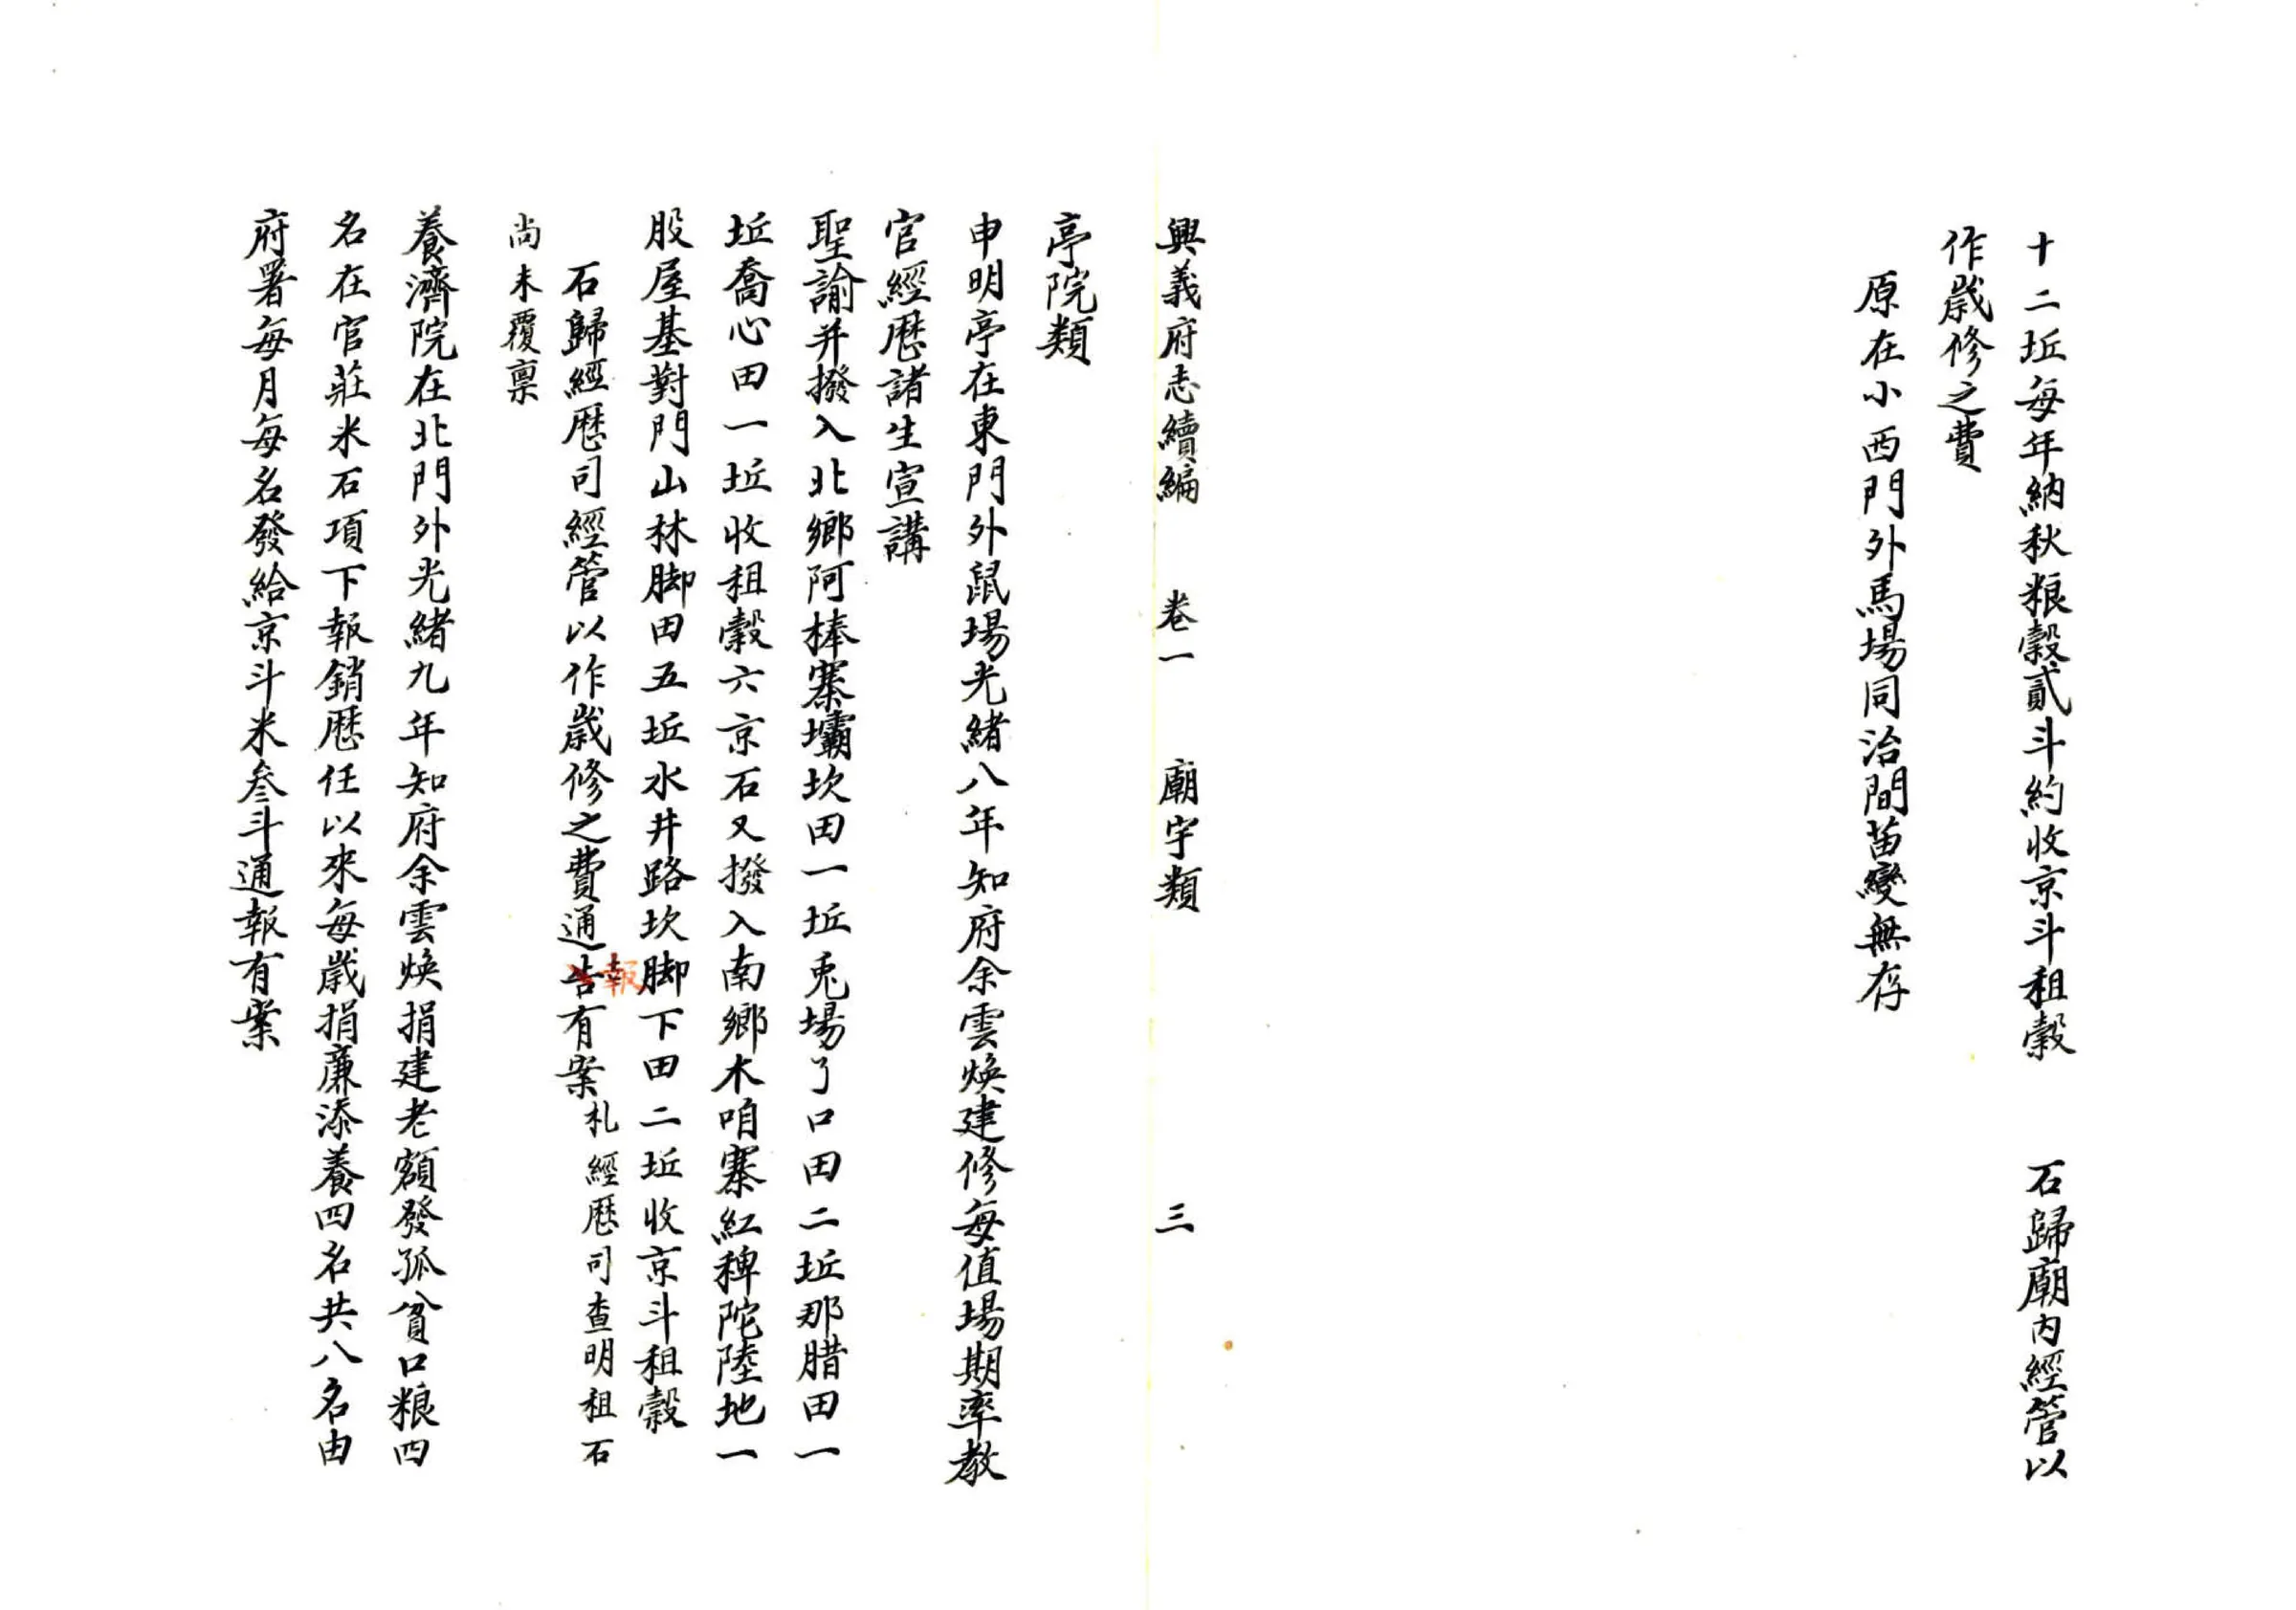 十二坵每年納秋粮穀貳斗約收京斗租穀　　石歸廟內經管以
作歲修之費
原在小西門外馬場同治間苗變無存
興義府志續編　卷一　廟宇類　三
亭院類
申明亭在東門外鼠場光緒八年知府余雲煥建修每值場期率教
官經歷諸生宣講
聖諭并撥入北鄉阿棒寨壩坎田一坵兎場了口田二坵那腊田一
坵喬心田一坵收租穀六京石又撥入南鄉木咱寨紅稗陀陸地一
股屋基對門山林脚田五坵水井路坎脚下田二坵收京斗租穀
石歸經歷司經管以作歲修之費通告報有案札經歷司查明租石
尚未覆禀
養濟院在北門外光緒九年知府余雲煥捐建老額發孤貧口粮四
名在官莊米石項下報銷歷任以來每歲捐廉添養四名共八名由
府署每月每名發給京斗米叁斗通報有案